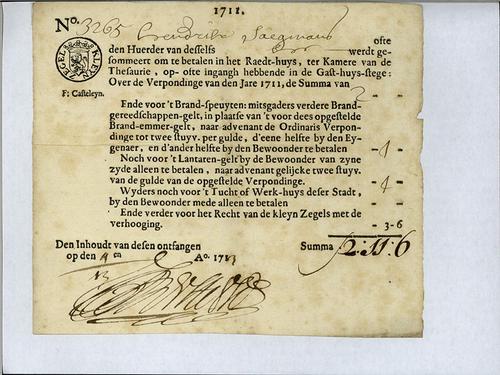 1711.
No. 3265 Hendrik
ofte
den Huerder van desselfs werdt ge-
sommeert om te betalen in het Raedt-huys, ter Kamere van de
Thesaurie, op-ofte ingangh hebbende in de Gast-huys-stege:
Over de Verpondinge van den Jare 1711, de Summa van 2 - -
KLEYN ZEGEL
F: Casteleyn.
Ende voor 't Brand-speuyten: mitsgaders verdere Brand-
gereedschappen-gelt, in plaetse van 't voor dees opgestelde
Brand-emmer-gelt, naar advenant de Ordinaris Verpon-
dinge tot twee stuyv. per gulde, d'eene helfte by den Ey-
genaer, en d'ander helfte by den Bewoonder te betalen - 4 -
Noch voor 't Lantaren-gelt by de Bewoonder van zyne
zyde alleen te betalen, naar advenant gelijcke twee stuyv.
van de gulde van de opgestelde Verpondinge. - 4 -
Wyders noch voor 't Tucht of Werk-huys deser Stadt,
by den Bewoonder mede alleen te betalen - - -
Ende verder voor het Recht van de kleyn Zegels met de
verhooging. - 3-6
Den Inhoudt van desen ontfangen Summa 2:11:6
op den Ao. 1713